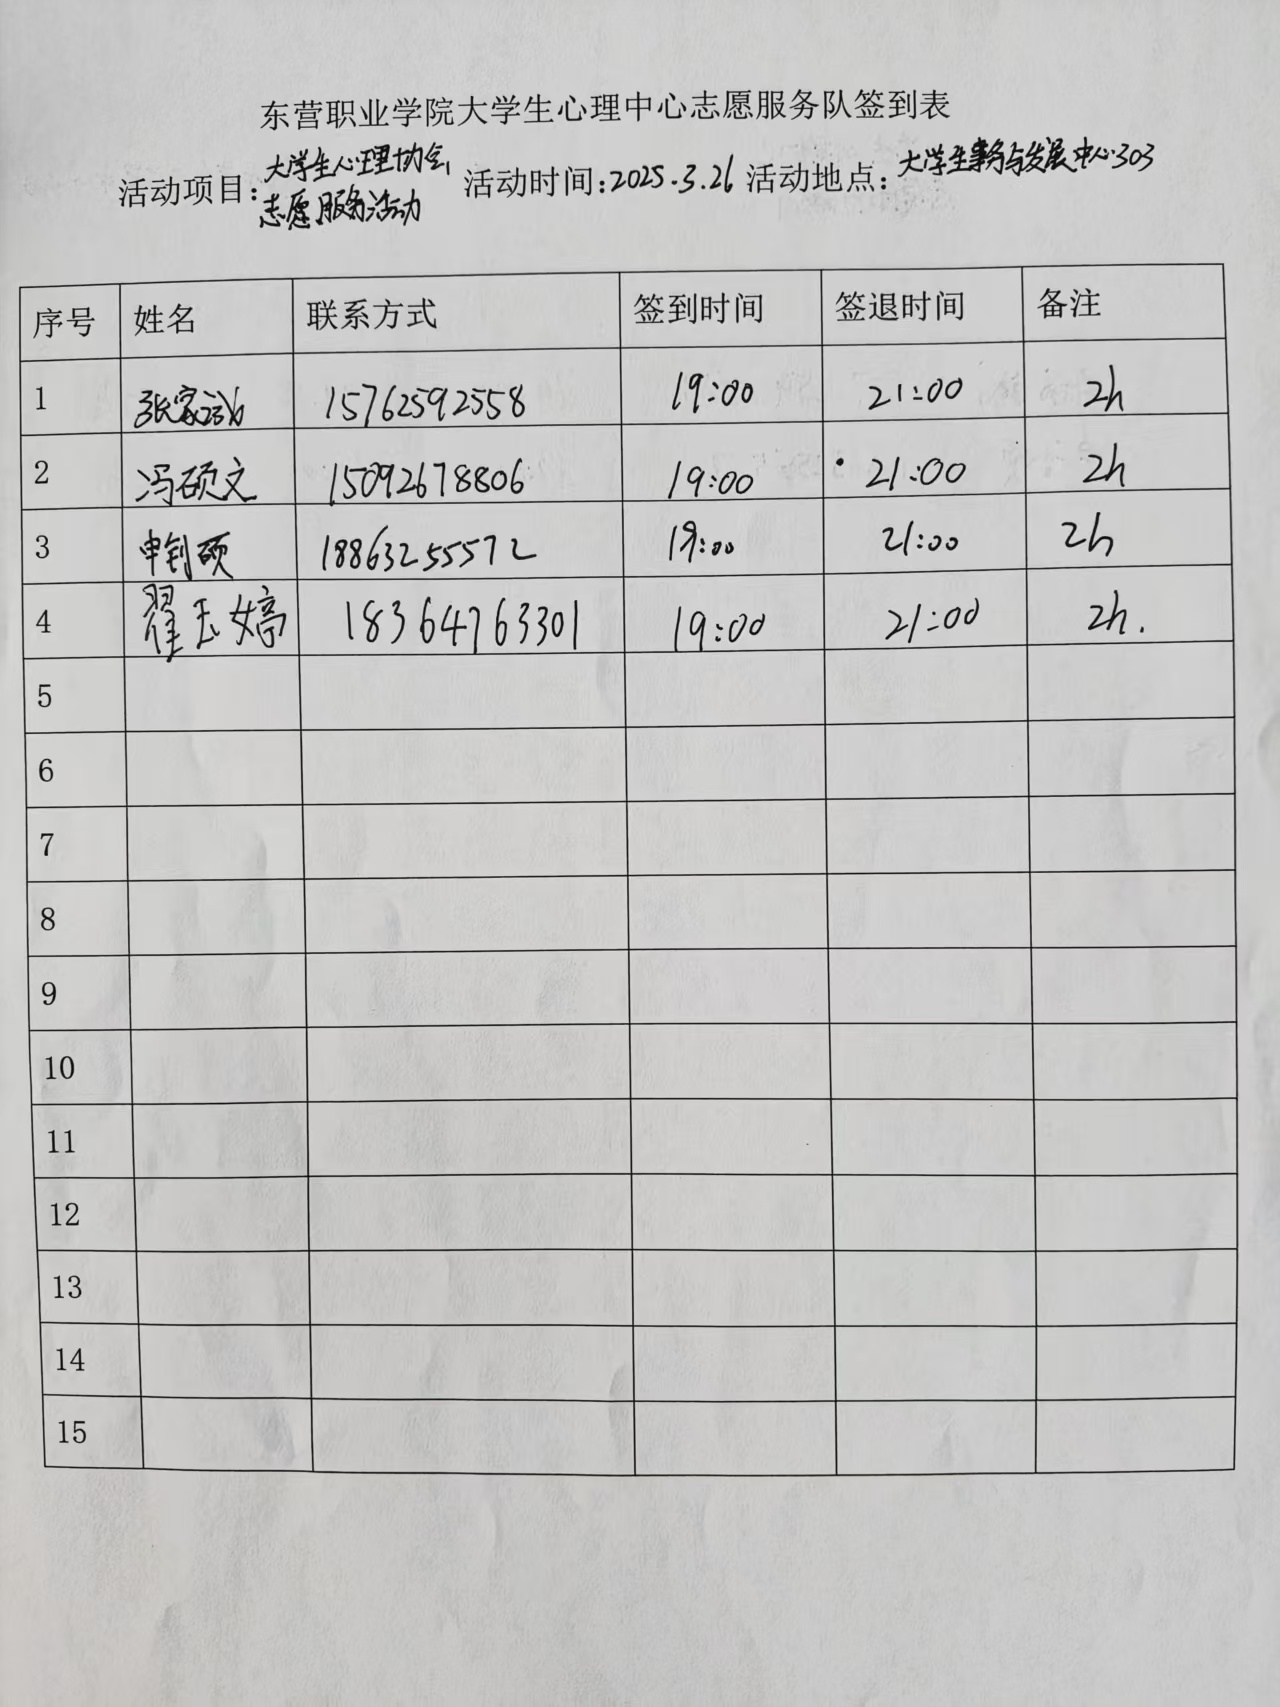 东营职业学院大学生心理中心志愿服务队签到表
活动项目:大学生心理协会志愿服务活动 活动时间:2025.3.26 活动地点:大学生事务与发展中心303
序号 姓名 联系方式 签到时间 签退时间 备注
1 张家 15762592558 19:00 21:00 2h
2 冯硕文 15092678806 19:00 21:00 2h
3 申钊硕 18863255572 19:00 21:00 2h
4 翟玉婷 18364763301 19:00 21:00 2h.
5
6
7
8
9
10
11
12
13
14
15